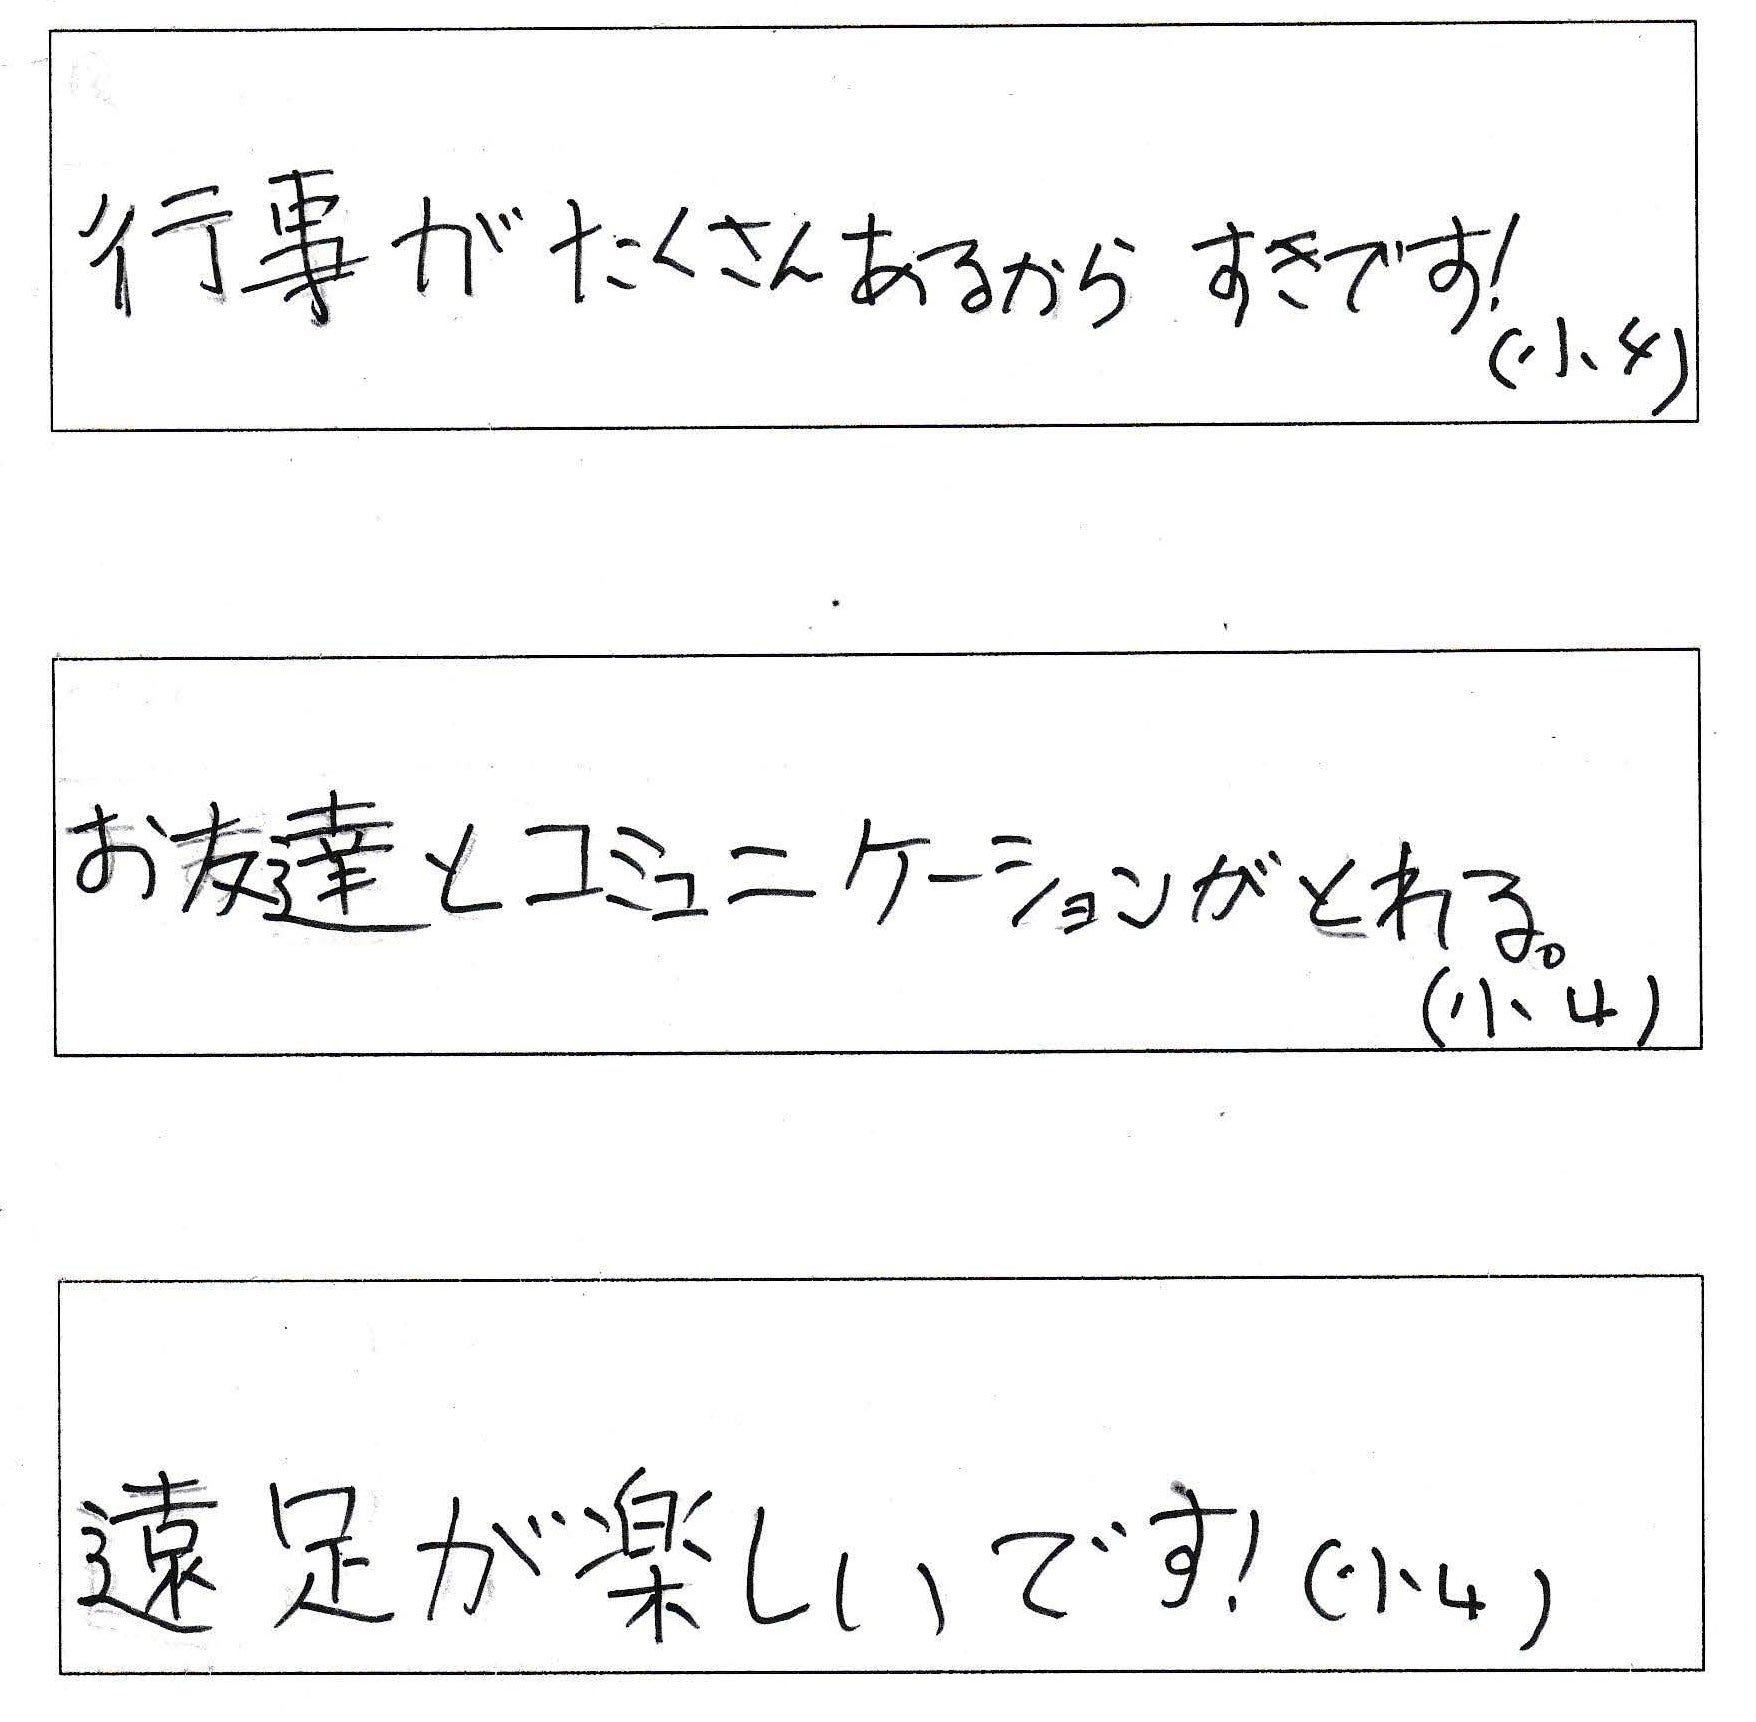 行事がたくさんあるからすきです!
(小4)
お友達とコミュニケーションがとれる。
(小4)
遠足が楽しいです!(小4)